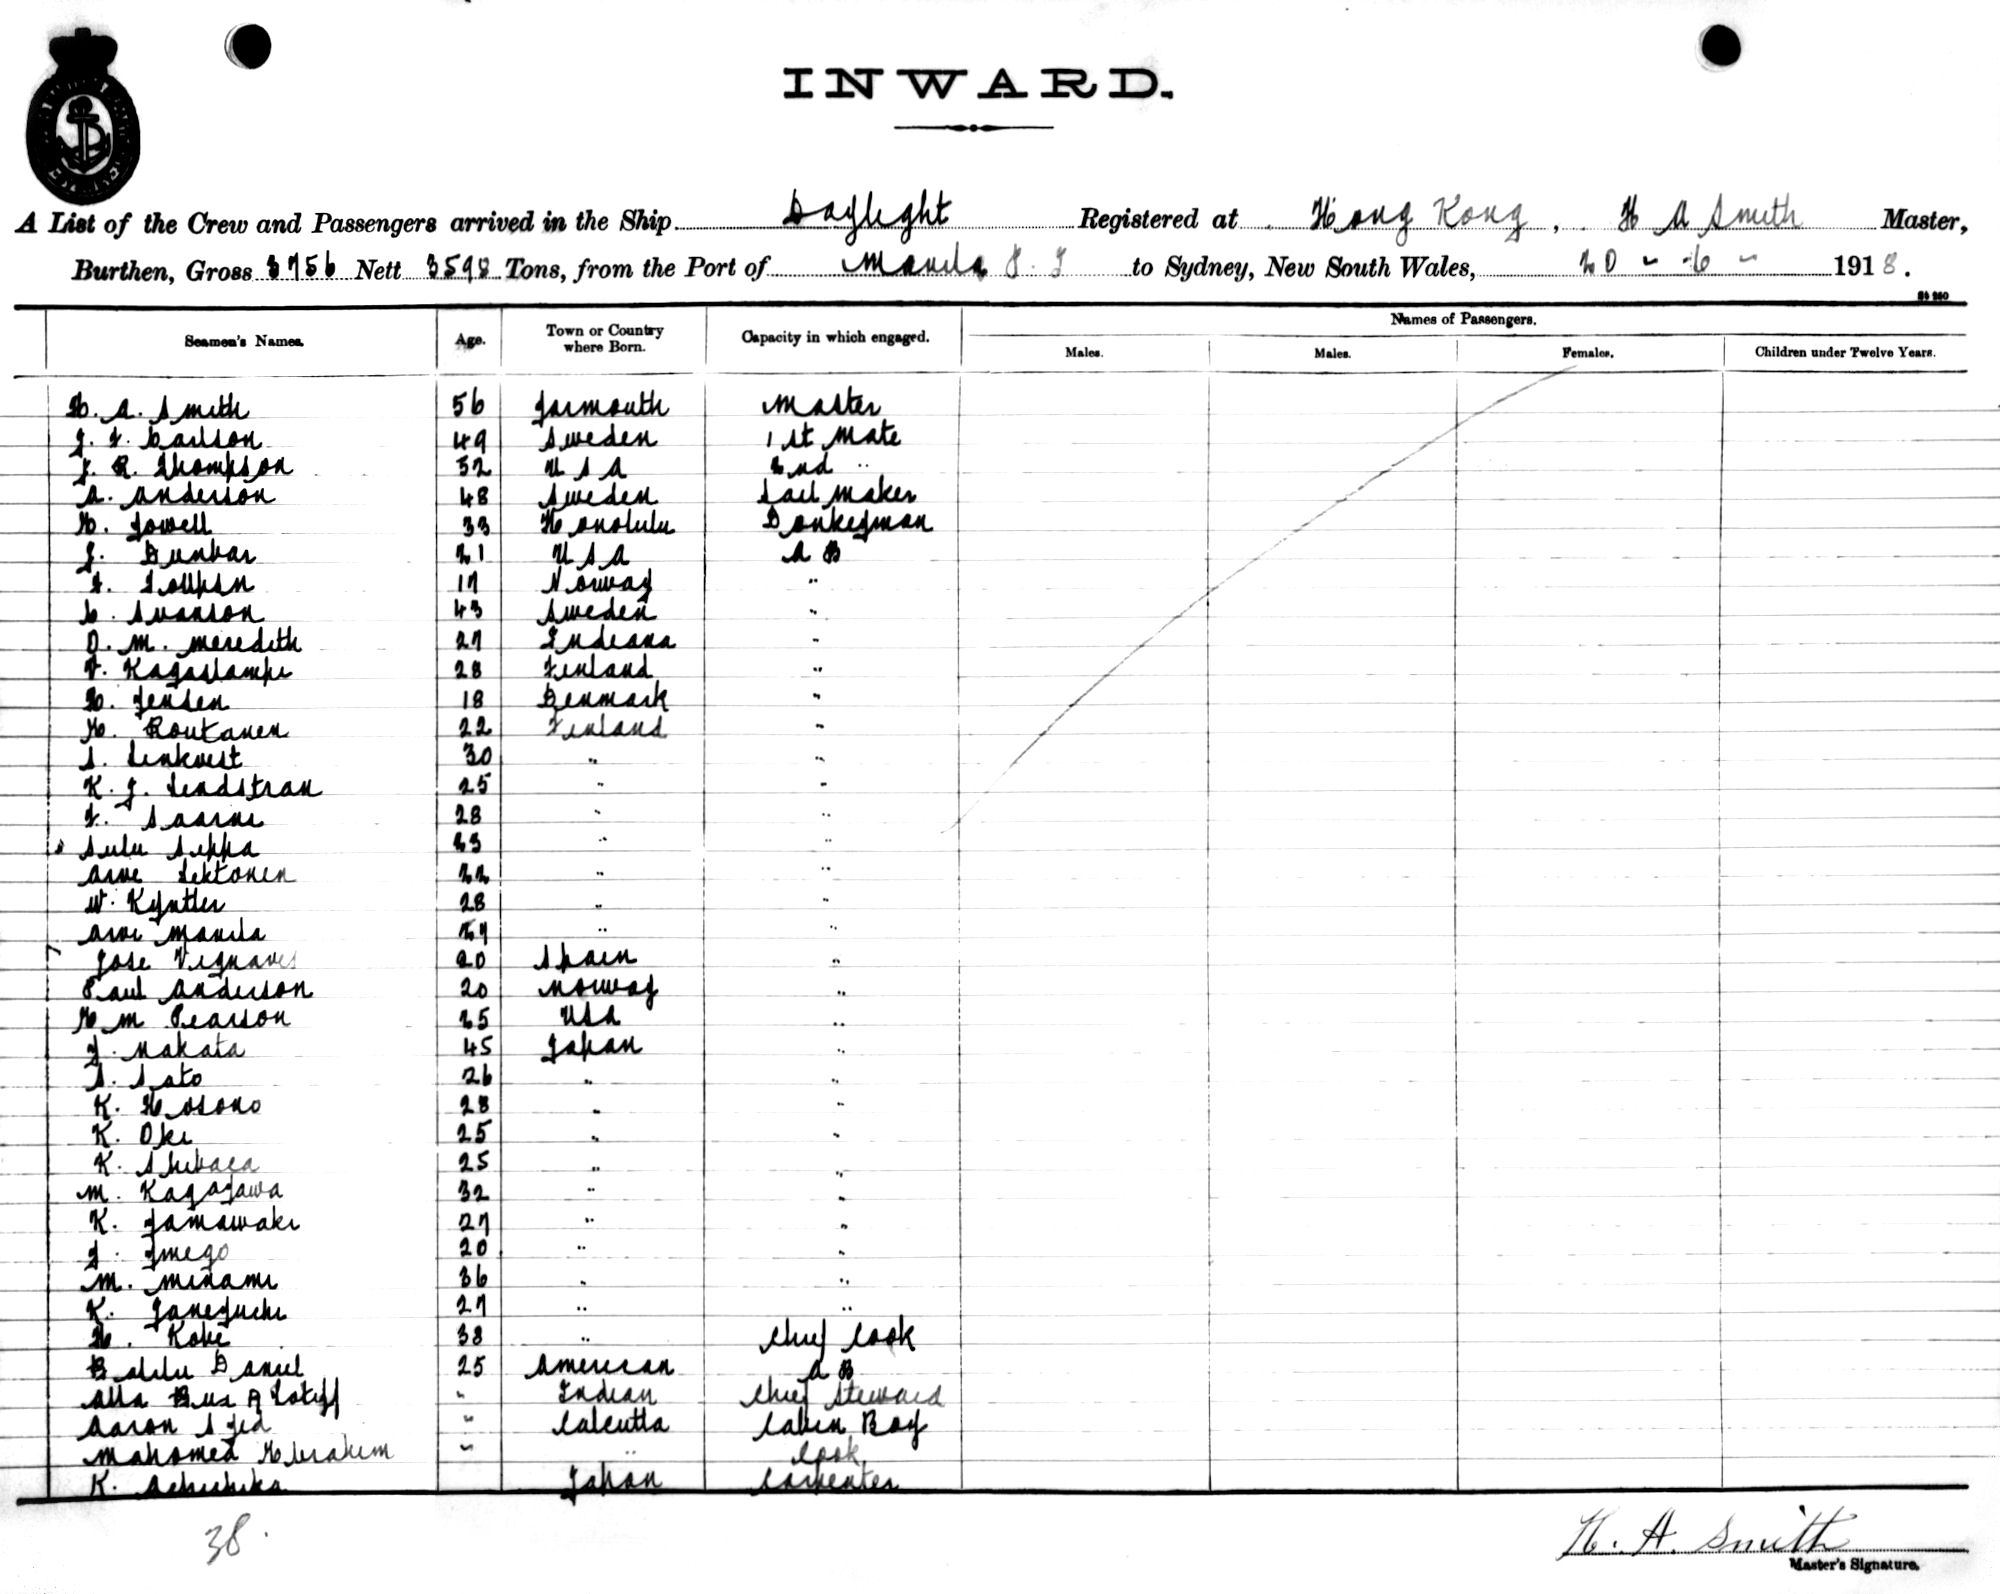 INWARD.
A List of the Crew and Passengers arrived in the Ship Daylight Registered at Hong Kong, H A Smith Master,
Burthen, Gross 3756 Nett 3598 Tons, from the Port of Manila P. I to Sydney, New South Wales, 20 - 6 - 1918.
Names of Passengers.
Seamen's Names. Age. Town or Country where Born. Capacity in which engaged. Males. Males. Females. Children under Twelve Years.
H. A. Smith 56 Yarmouth Master
J. F. Carlson 49 Sweden 1st Mate
J. R. Thompson 52 U S A 2nd "
A. Anderson 48 Sweden Sail Maker
H. Jowell 33 Honolulu Donkeyman
J. Dunbar 21 U S A A B
17 Norway "
C. Svanson 43 Sweden "
O. M. Meredith 27 Indiana "
V. Kagaslampi 28 Finland "
H. Jensen 18 Denmark "
H. Routanen 22 Finland "
S. Linkvist 30 " "
K. J. Lindstran 25 " "
F. Saarni 28 " "
Sulu Seppa 23 " "
Arve Lektonen 22 " "
W. Kyntler 28 " "
Arvi Manila 27 " "
Jose 20 Spain "
Paul Anderson 20 Norway "
H M Pearson 25 USA "
J. Nakata 45 Japan "
S. Sato 26 " "
K. Hosono 28 " "
K. Oki 25 " "
K. Shibaea 25 " "
M. Kagajawa 32 " "
K. Jamawaki 27 " "
J. Jmego 20 " "
M. Minami 36 " "
K. Janeguchi 27 " "
H. Kobe 38 " Chief Cook
Daniel 25 American A B
Alla Bux A Latiff " Indian Chief Steward
Aaron Syed " Calcutta Cabin Boy
Mahomed Hebrahim " " Cook
K. Achichika Japan Carpenter
38.
H. A. Smith
Master's Signature.